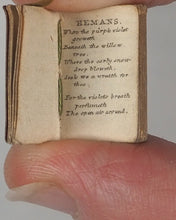 HEMANS.
When the purple violet
groweth
Beneath the willow
tree,
Where the early snow-
drop bloweth,
Seek we a wreath for
thee,
For the violets breath
perfumeth
The open air around,